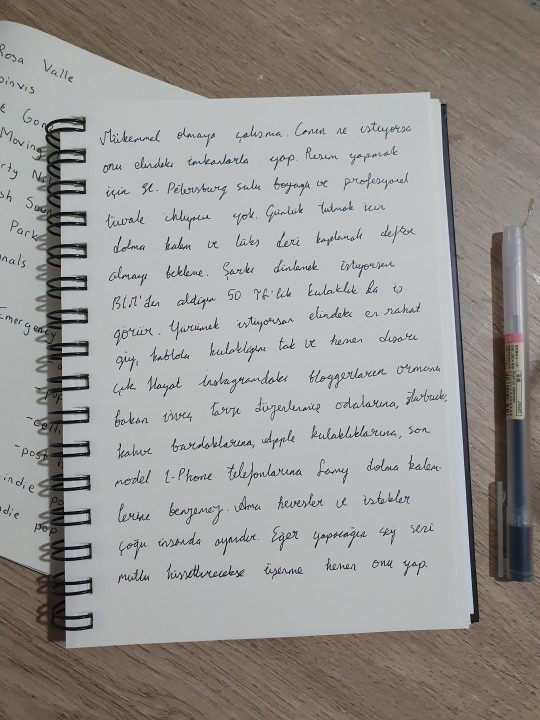 Rosa Valle
Moving
Park
Emergency
indie
pop
Mükemmel olmaya çalışma. Canın ne istiyorsa
onu elindeki imkanlarla yap. Resim yapmak
için St. Petersburg sulu boyaya ve profesyonel
tuvale ihtiyacın yok. Günlük tutmak için
dolma kalem ve lüks deri kaplamalı defter
almayı bekleme. Şarkı dinlemek istiyorsan
BİM'den aldığın 50 TL'lik kulaklık da iş
görür. Yürümek istiyorsan elindeki en rahat
giy, kablolu kulaklığını tak ve hemen dışarı
çık. Hayat instagramdaki bloggerların ormana
bakan tarzı düzenlenmiş odalarına, starbucks
kahve bardaklarına, Apple kulaklıklarına, son
model I-Phone telefonlarına Lamy dolma kalem-
lerine benzemez. Ama hevesler ve istekler
çoğu insanda aynıdır. Eğer yapacağın şey seni
mutlu hissettirecekse üşenme hemen onu yap.